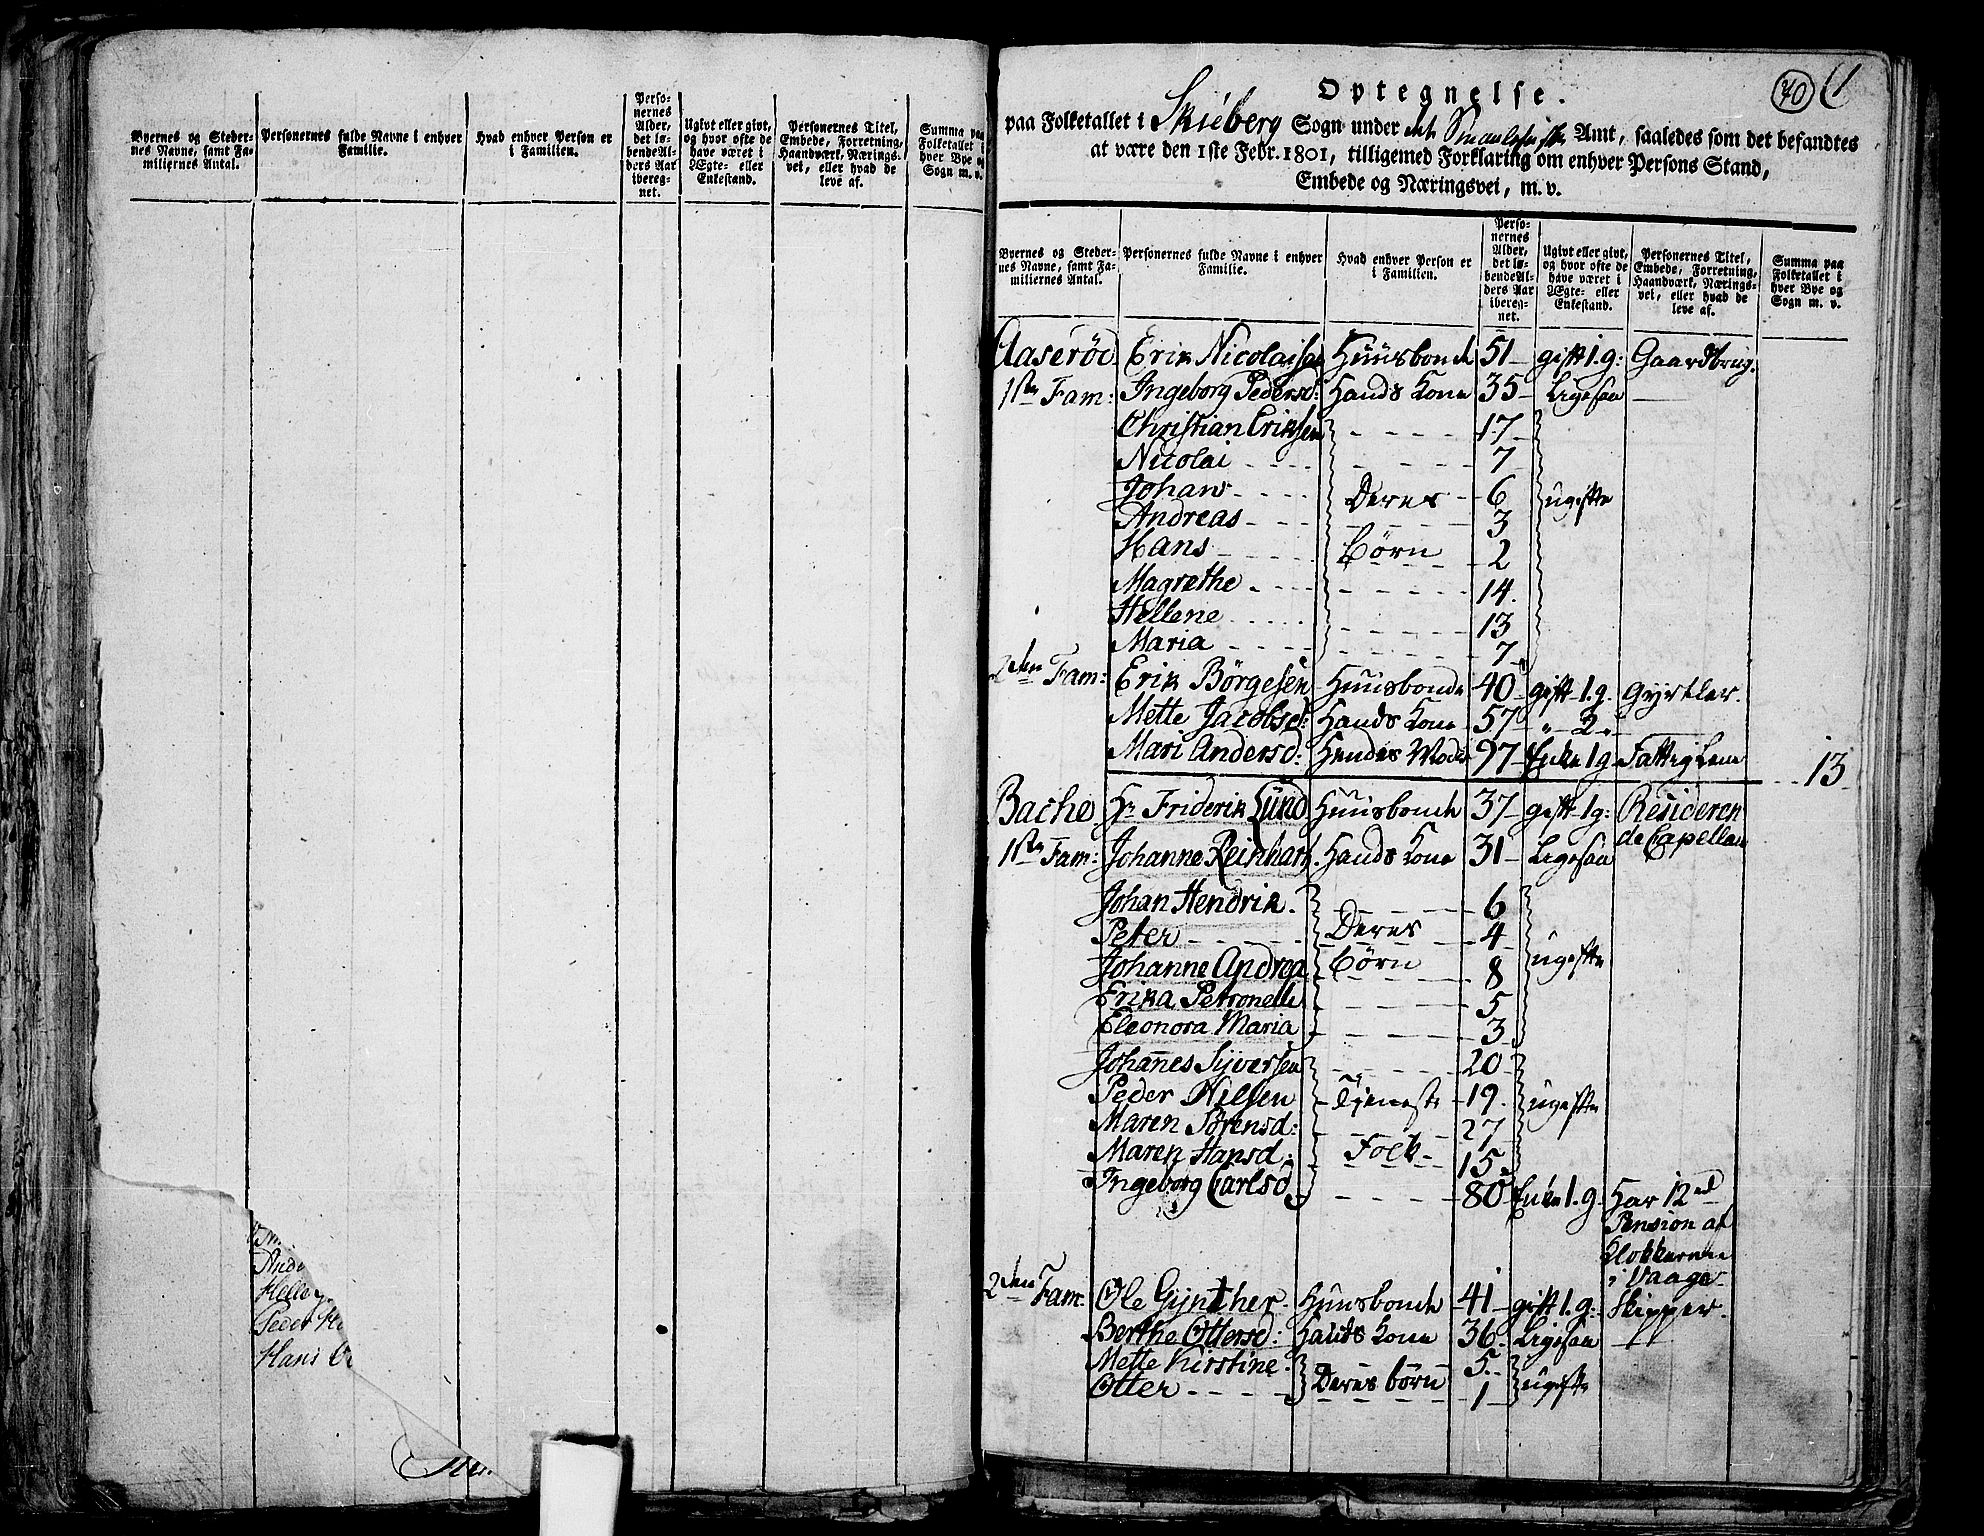 Byernes og Steder-
nes Navne, samt Fa-
miliernes Antal.
Personernes fulde Navne i enhver
Familie.
Hvad enhver Person er
i Familien.
Perso-
nernes
Alder,
det lø-
bende Al-
ders Aar
ibereg-
net.
Ugivt eller givt,
og hvor ofte de
have været i
Ægte- eller
Enkestand.
Personernes Titel,
Embede, Forretning,
Haandværk, Nærings-
vei, eller hvad de
leve af.
Summa paa
Folketallet i
hver Bye og
Sogn m. v.
Peder
Hans
70
Optegnelse.
paa Folketallet i Skieberg Sogn under det Smaalehnske Amt, saaledes som det befandtes
at være den 1ste Febr. 1801, tilligemed Forklaring om enhver Persons Stand,
Embede og Næringsvei, m. v.
Byernes og Steder-
nes Navne, samt Fa-
miliernes Antal.
Personernes fulde Navne i enhver
Familie.
Hvad enhver Person er
i Familien.
Perso-
nernes
Alder,
det lø-
bende Al-
ders Aar
ibereg-
net.
Ugivt eller givt,
og hvor ofte de
have været i
Ægte- eller
Enkestand.
Personernes Titel,
Embede, Forretning,
Haandværk, Nærings-
vei, eller hvad de
leve af.
Summa paa
Folketallet i
hver Bye og
Sogn m. v.
Aaserød Erik Nicolaisen Huusbonde 51 gift 1. g: Gaardbrug.
1ste Fam: Ingeborg Pedersd: Hands Kone 35 Ligesaa
Christian Eriksen 17
Nicolai 7
Johan Deres 6 ugifte
Andreas 3
Hans Børn 2
Magrethe 14
Hellene 13
Maria 7
2den Fam: Erik Börgesen Huusbonde 40 gift 1. g. Gyrtler.
Mette Jacobsd: Hands Kone 57 " 2 "
Mari Andersd: Hendes Moder 97 Enke 1 g. Fattig Lem 13
Bache Hr Friderik Lund Huusbonde 37 gift 1 g: Resideren
de Capellan
1ste Fam: Johanne Reinhart Hands Kone 31 Ligesaa
Johan Hendrik. 6
Peter Deres 4
Johanne Andrea Børn 8 ugifte
Erika Petronelle 5
Eleonora Maria 3
Johannes Syversen 20
Peder Nilsen Tjeneste 19. ugifte
Maren Sörensd: 27
Maren Hansd: Folk 15
Ingeborg Carlsd 80 Enke 1. g. Har 12 rd
Pension af
Klokkerne
i Vaage
2den Fam. Ole Gynther Huusbonde 41 gift 1. g: Skipper.
Berthe Ottersd: Hands Kone 36 Ligesaa
Mette Kirstine 5
Otter Deres børn 1 ugifte